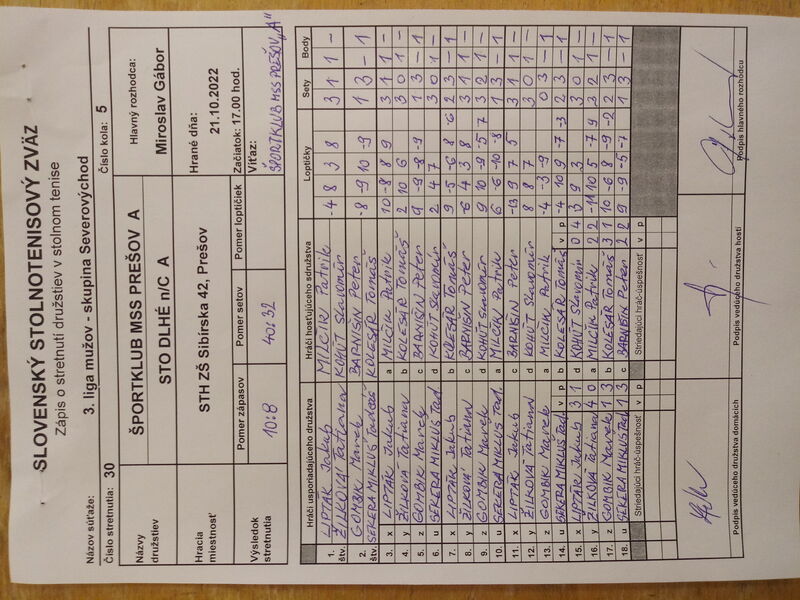 SLOVENSKÝ STOLNOTENISOVÝ ZVÄZ
Zápis o stretnutí družstiev v stolnom tenise
Názov súťaže: 3. liga mužov - skupina Severovýchod
Číslo stretnutia: 30 Číslo kola: 5
Názvy družstiev ŠPORTKLUB MSS PREŠOV A Hlavný rozhodca:
STO DLHÉ n/C A Miroslav Gábor
Hracia miestnosť STH ZŠ Sibírska 42, Prešov Hrané dňa: 21.10.2022
Začiatok: 17.00 hod.
Výsledok stretnutia Pomer zápasov Pomer setov Pomer loptičiek Víťaz:
10:8 40:32 ŠPORTKLUB MSS PREŠOV „A"
Hráči usporiadajúceho družstva Hráči hosťujúceho sdružstva Loptičky Sety Body
1. LIPTÁK Jakub MILČÍK Patrik -4 8 3 8 3 1 1 -
štv. ŽILKOVÁ Tatiana KOHÚT Slavomír
2. GOMBIK Marek BARNIŠIN Peter -8 -9 10 -9 1 3 - 1
štv. SEKERA MIKLUŠ Tadeáš KOLESÁR Tomáš
3. x LIPTÁK Jakub a MILČÍK Patrik 10 -8 8 9 3 1 1 -
4. y ŽILKOVÁ Tatiana b KOLESÁR Tomáš 2 10 6 3 0 1 -
5. z GOMBIK Marek c BARNIŠIN Peter 9 -9 -8 -9 1 3 - 1
6. u SEKERA MIKLUŠ Tad d KOHÚT Slavomír 2 4 7 3 0 1 -
7. x LIPTÁK Jakub b KOLESÁR Tomáš 9 -5 -6 8 -6 2 3 - 1
8. y ŽILKOVÁ Tatiana c BARNIŠIN Peter -6 4 3 8 3 1 1 -
9. z GOMBIK Marek d KOHÚT Slavomír 9 10 -9 -5 7 3 2 1 -
10. u SEKERA MIKLUŠ Tad. a MILČÍK Patrik 6 -6 -10 -8 1 3 - 1
11. x LIPTÁK Jakub c BARNIŠIN Peter -13 9 7 5 3 1 1 -
12. y ŽILKOVÁ Tatiana d KOHÚT Slavomír 8 8 7 3 0 1 -
13. z GOMBIK Marek a MILČÍK Patrik -4 -3 -9 0 3 - 1
14. u SEKERA MIKLUŠ Tad. v p b KOLESÁR Tomáš v p -4 10 9 -7 -3 2 3 - 1
15. x LIPTÁK Jakub 3 1 d KOHÚT Slavomír 0 4 3 9 3 3 0 1 -
16. y ŽILKOVÁ Tatiana 4 0 a MILČÍK Patrik 2 2 -11 10 5 -7 9 3 2 1 -
17. z GOMBIK Marek 1 3 b KOLESÁR Tomáš 3 1 10 -6 8 -9 -2 2 3 - 1
18. u SEKERA MIKLUŠ Tad 1 3 c BARNIŠIN Peter 2 2 9 -9 -5 -7 1 3 - 1
Striedajúci hráč-úspešnosť v p Striedajúci hráč-úspešnosť v p
Podpis vedúceho družstva domácich Podpis vedúceho družstva hostí Podpis hlavného rozhodcu